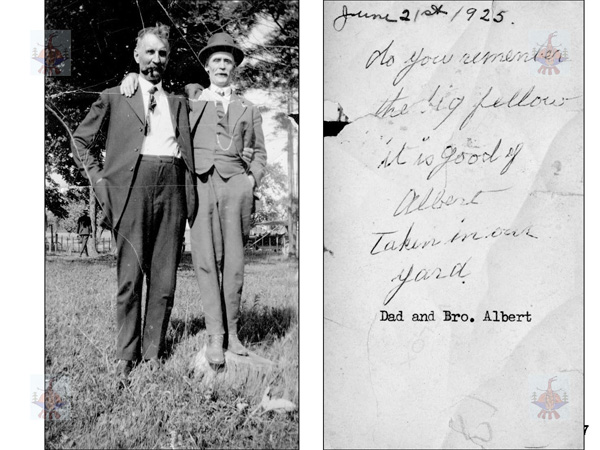 June 21st 1925.
do you remember
the big fellow
it is good of
Albert
Taken in our
yard.
Dad and Bro. Albert
7